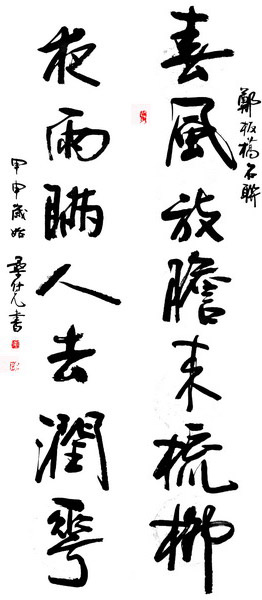 鄭板橋名聯
春風放膽來梳柳
夜雨瞞人去潤華
甲申歲始 書